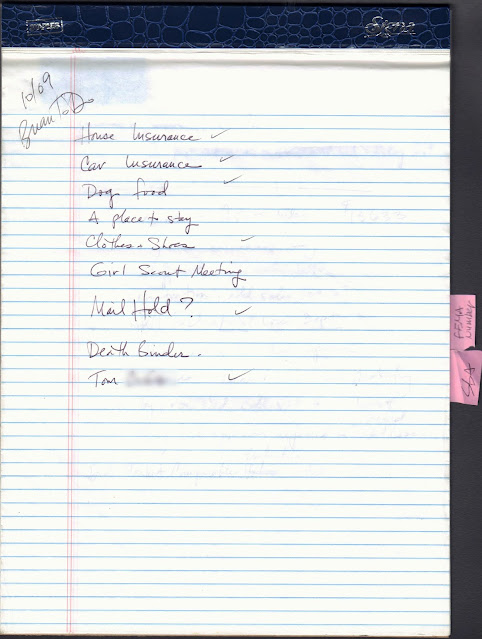 STAPLES
Sigma
10/09
Brian To Do
House Insurance ✓
Car Insurance ✓
Dog food ✓
A place to stay
Clothes + Shoes ✓
Girl Scout Meeting
Mail Hold? ✓
Death Binder.
Tom ✓
FEMA
number